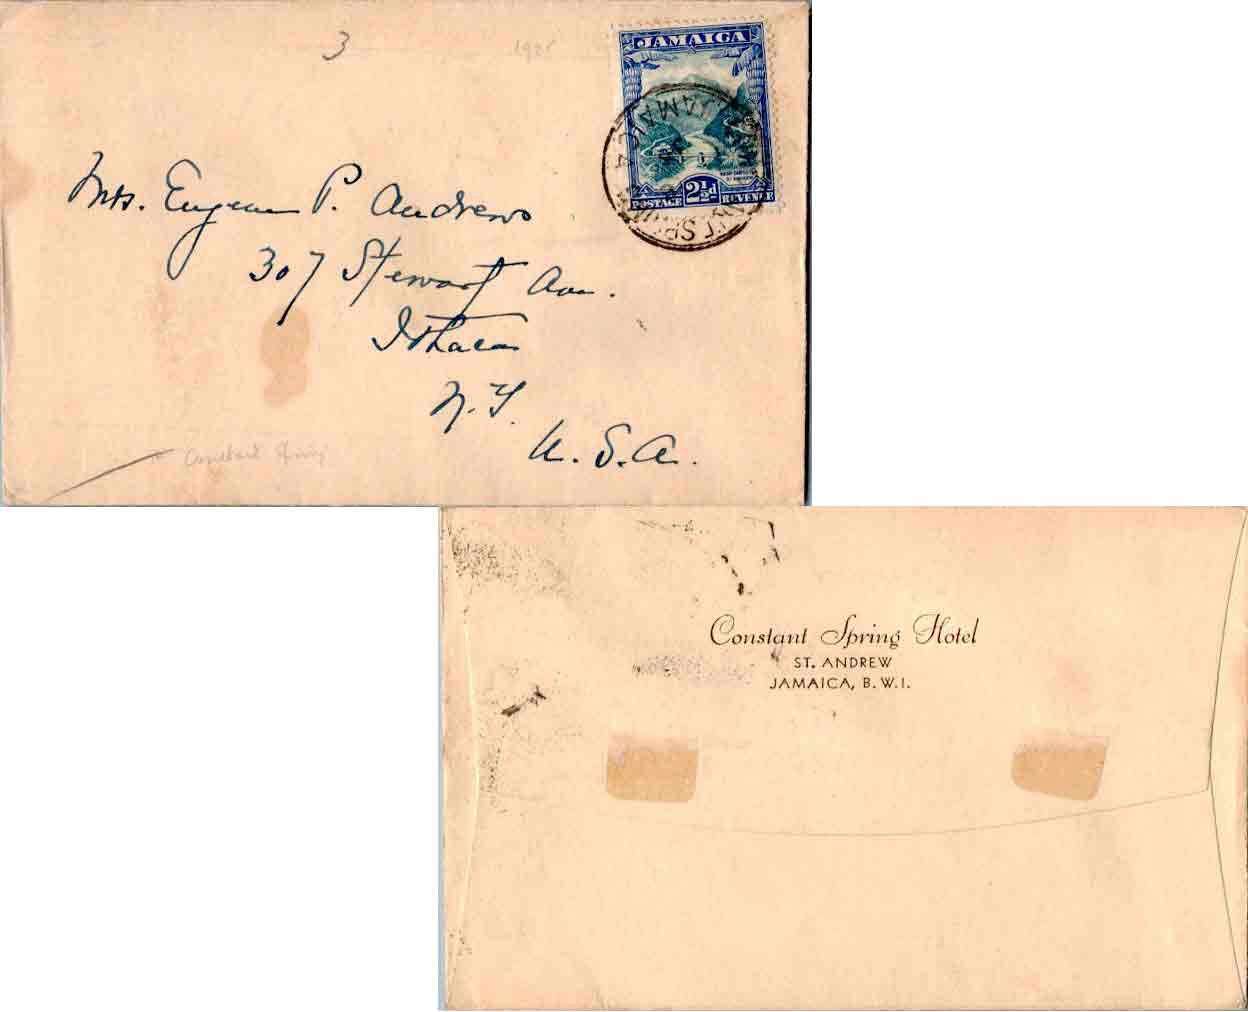 3
JAMAICA
JAMAICA
2½d
POSTAGE REVENUE
Mrs. Eugene P. Andrews
307 Stewart Ave.
Ithaca
N.Y.
U.S.A.
Constant Spring
Constant Spring Hotel
ST. ANDREW
JAMAICA, B.W.I.